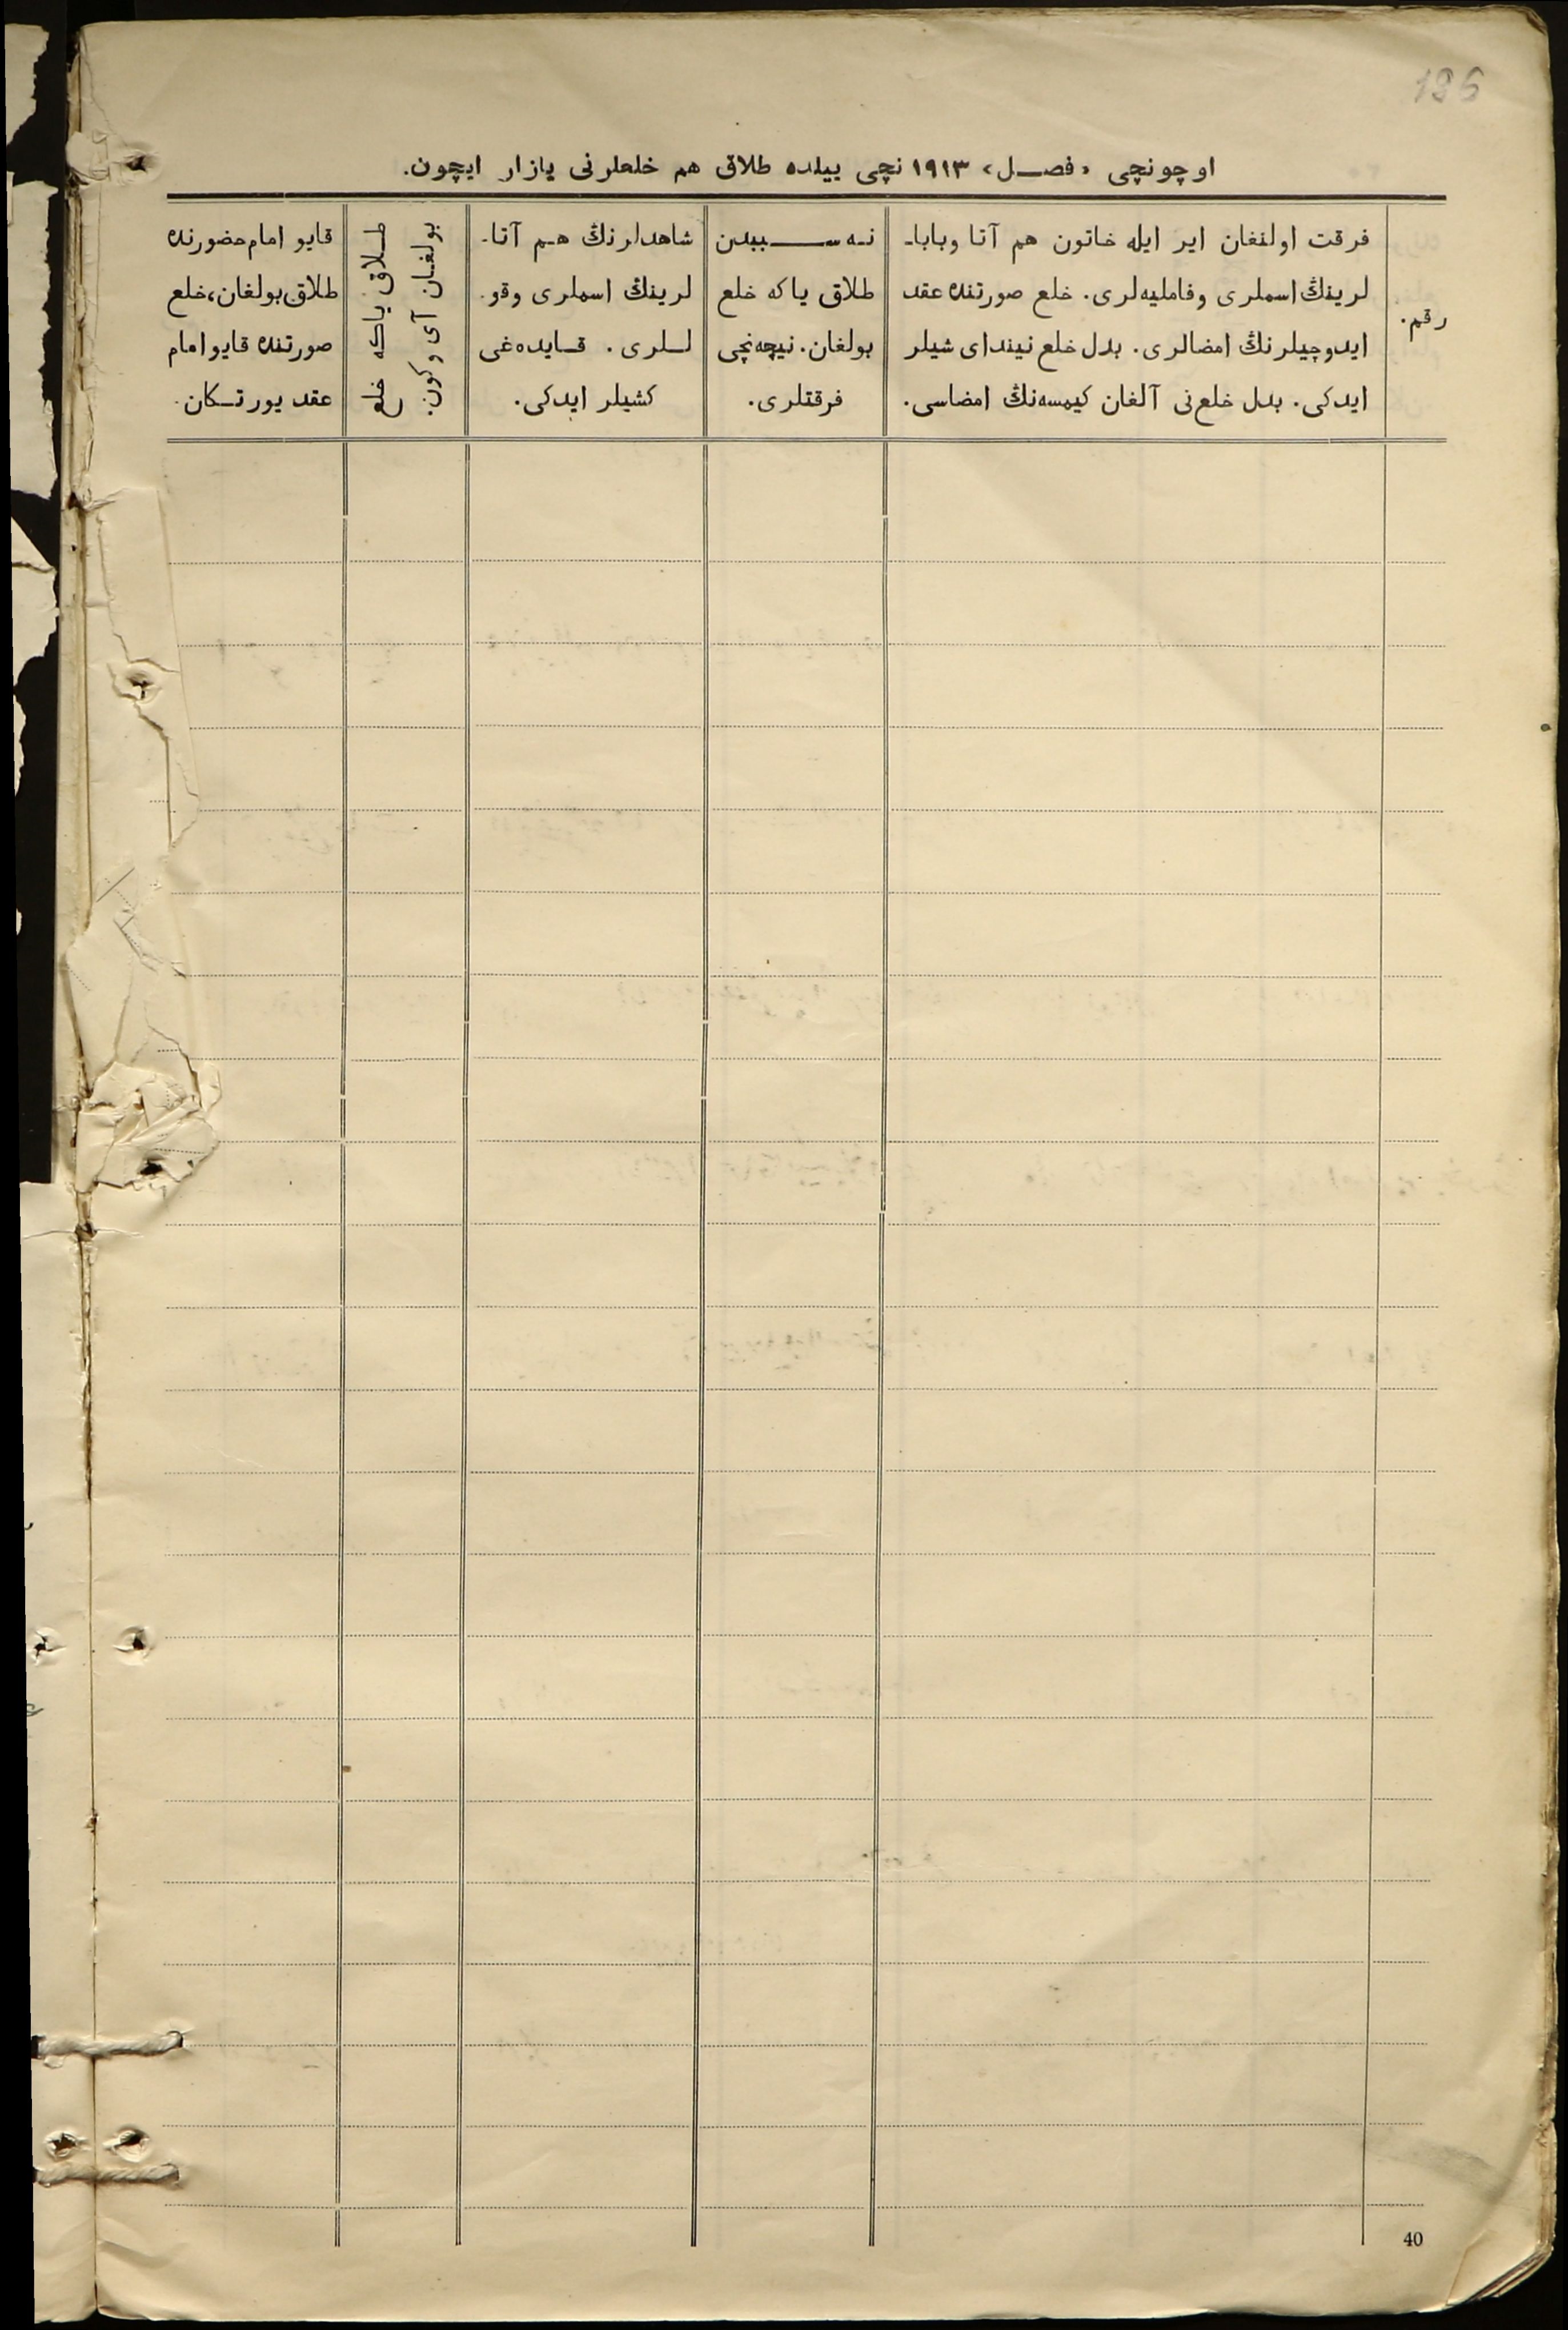 186
اوچونچی «فصل» ١٩١٣ نچی ییلده طلاق هم خلعلرنی یازار ایچون.
رقم.
فرقت اولنغان ایر ایله خاتون هم آتا وبابا-
لرینڭ اسملری وفاملیه‌لری. خلع صورتنده عقد
ایدوچیلرنڭ امضالری. بدل خلع نیندای شیلر
ایدکی. بدل خلع‌نی آلغان کیمسه‌نڭ امضاسی.
نه سببدن
طلاق یاکه خلع
بولغان. نیچه‌نچی
فرقتلری.
شاهدلرنڭ هم آتا-
لرینڭ اسملری وقو-
للری. قایده‌غی
کشیلر ایدکی.
طلاق یاکه خلع
بولغان آی وکون.
قایو امام حضورنده
طلاق بولغان، خلع
صورتنده قایو امام
عقد یورتکان.
40